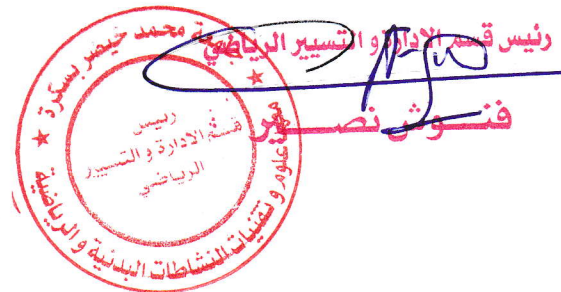 رئيس قسم الادارة و التسيير الرياضي
فنــوش نصــير
جامعة محمد خيضر بسكرة
معهد علوم و تقنيات النشاطات البدنية و الرياضية
رئيس
قسم الادارة و التسيير
الرياضي